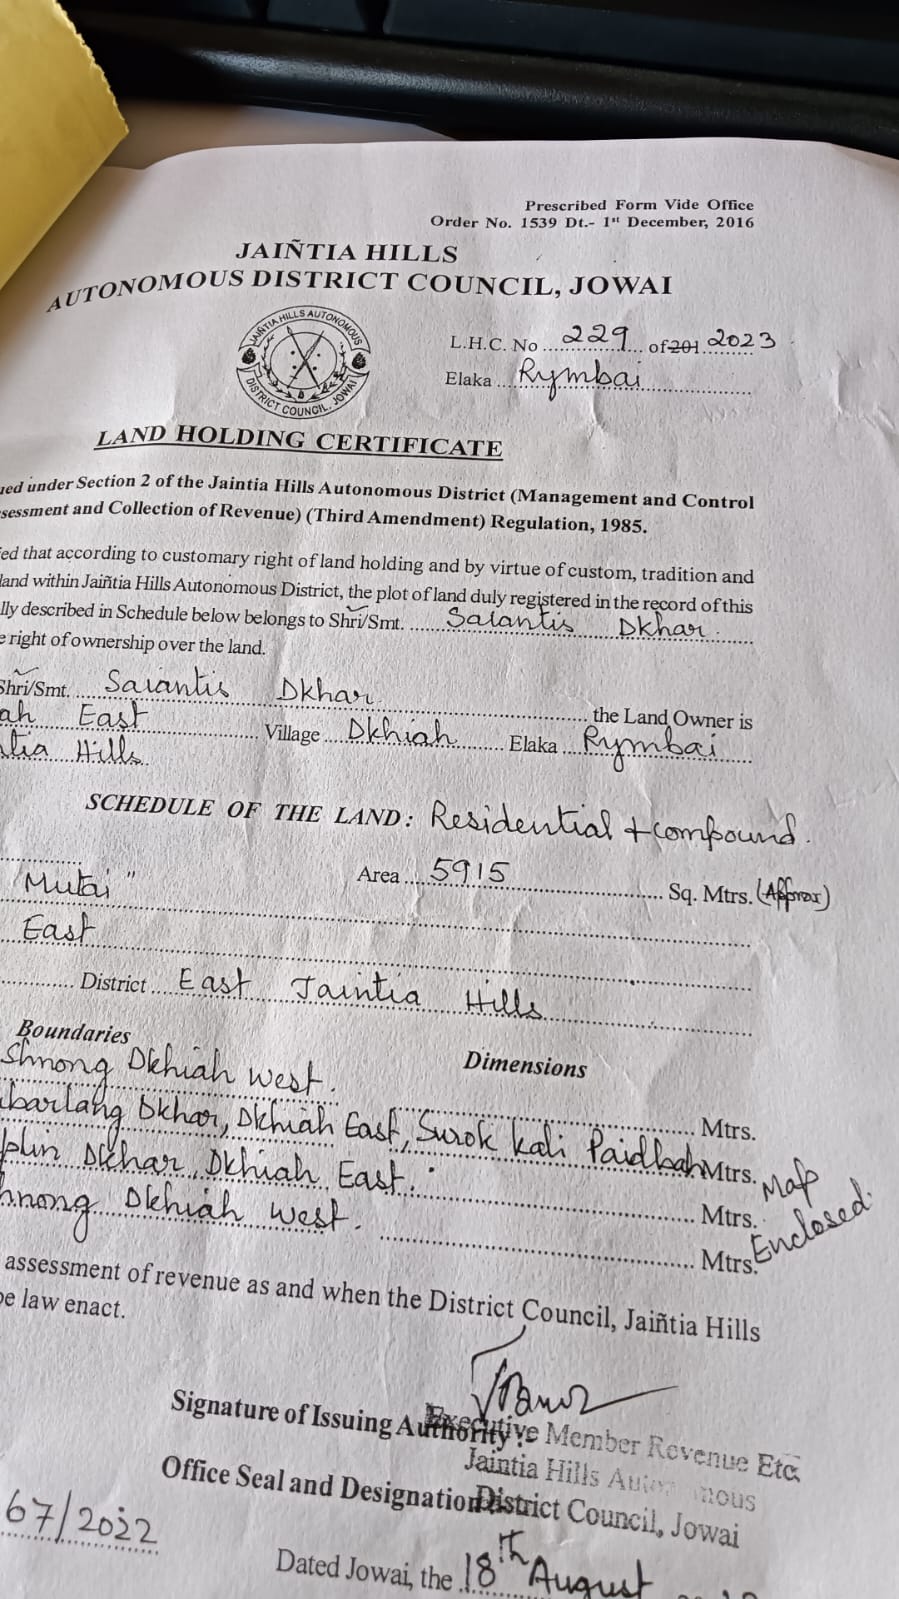 Prescribed Form Vide Office
Order No. 1539 Dt.- 1st December, 2016
JAIÑTIA HILLS
AUTONOMOUS DISTRICT COUNCIL, JOWAI
JAIÑTIA HILLS AUTONOMOUS
DISTRICT COUNCIL, JOWAI
L.H.C. No 229 of 201 2023
Elaka Rymbai
LAND HOLDING CERTIFICATE
ued under Section 2 of the Jaintia Hills Autonomous District (Management and Control
sessment and Collection of Revenue) (Third Amendment) Regulation, 1985.
ied that according to customary right of land holding and by virtue of custom, tradition and
land within Jaiñtia Hills Autonomous District, the plot of land duly registered in the record of this
lly described in Schedule below belongs to Shri/Smt. Saiantis Dkhar
e right of ownership over the land.
Shri/Smt. Saiantis Dkhar the Land Owner is
ah East Village Dkhiah Elaka Rymbai
ntia Hills
SCHEDULE OF THE LAND: Residential + compound.
Area 5915 Sq. Mtrs. (Approx)
"Mutai"
East
District East Jaintia Hills
Boundaries Dimensions
Shnong Dkhiah West. Mtrs.
ibarlang Dkhar, Dkhiah East, Surok Kali Paidbah Mtrs.
plin Dkhar, Dkhiah East. Mtrs.
hnong Dkhiah West. Mtrs.
Map Enclosed.
assessment of revenue as and when the District Council, Jaiñtia Hills
be law enact.
Signature of Issuing Authority :-
Executive Member Revenue Etc.
Jaintia Hills Autonomous
Office Seal and Designation
District Council, Jowai
67/2022
Dated Jowai, the 18th August